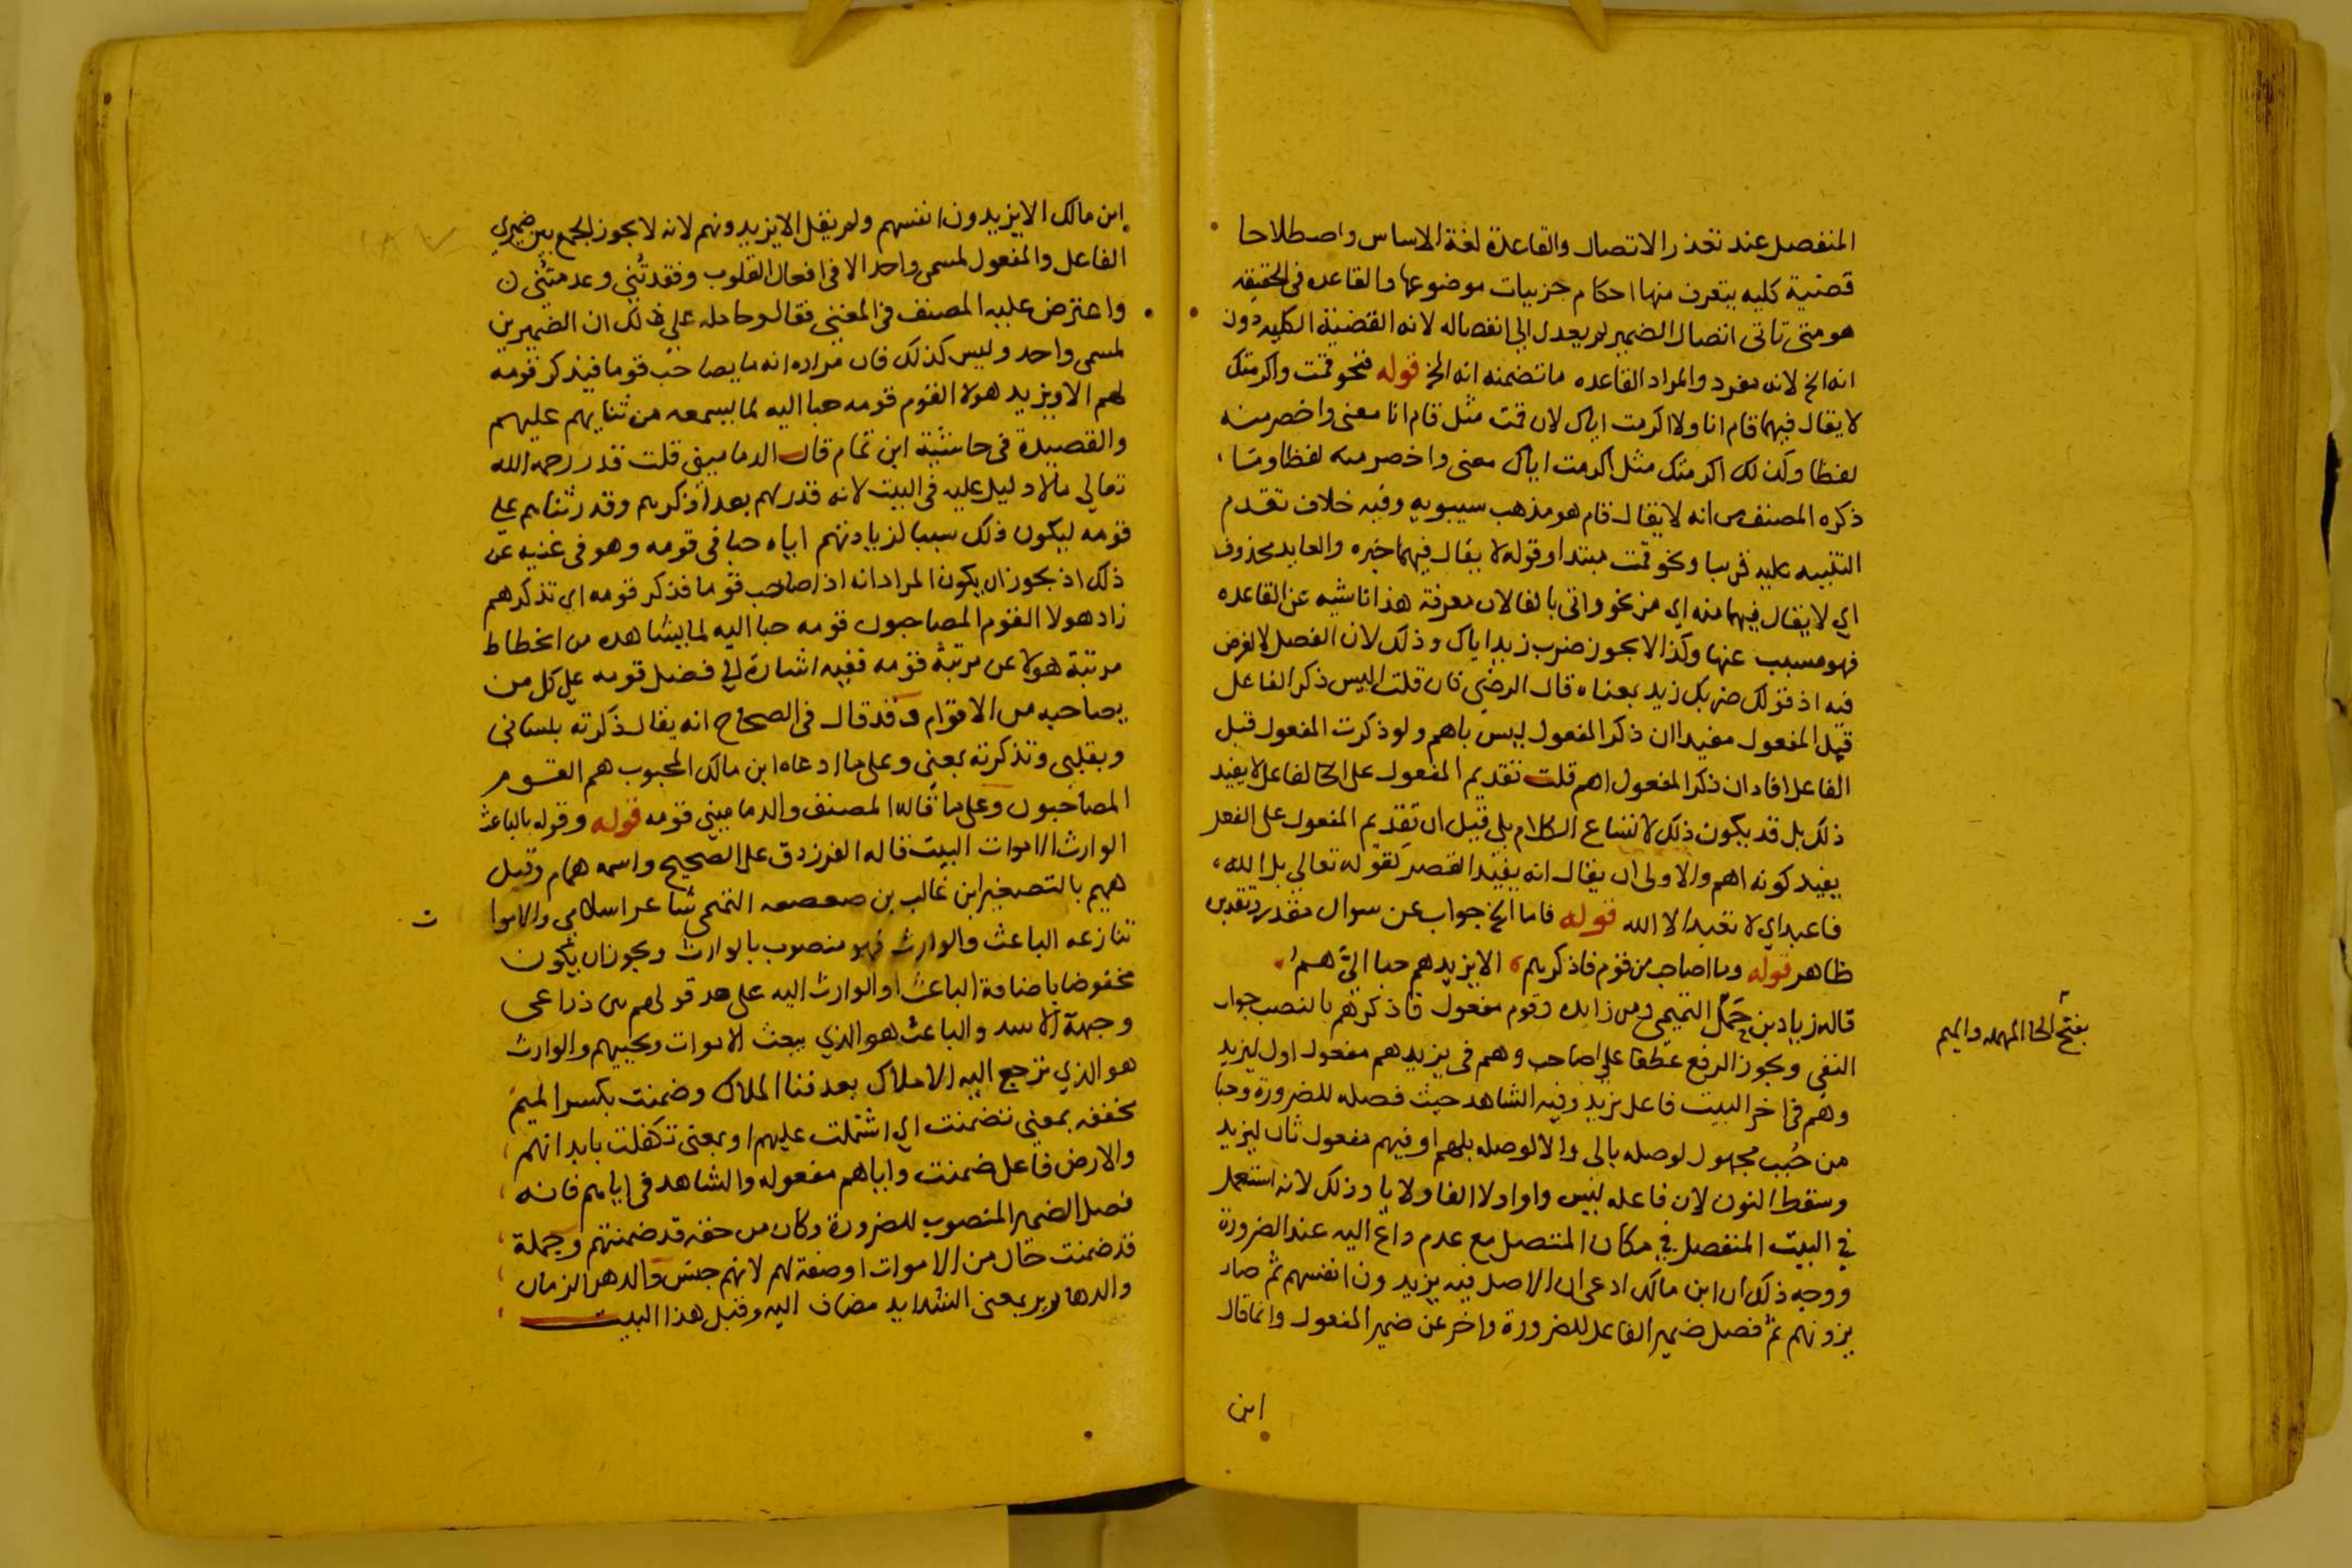 المنفصل عند تعذر الاتصال والقاعدة لغة الاساس واصطلاحا
قضية كليه يتعرف منها احكام جزييات موضوعها والقاعده في الحقيقه
هو متى تاتى اتصال الضمير لم يعدل الى انفصاله لانه القضية الكليه دون
انه الخ لانه مفرد والمراد القاعده ما تضمنه انه الخ قوله فنحو قمت واكرمتك
لا يقال فيهما قام انا ولا اكرمت اياك لان قمت مثل قام انا معنى واخصر منه
لفظا وكذلك اكرمتك مثل اكرمت اياك معنى واخصر منه لفظا وما
ذكره المصنف من انه لا يقال قام هو مذهب سيبويه وفيه خلاف تقدم
التنبيه عليه قريبا ونحو قمت مبتدا وقوله لا يقال فيهما خبره والعايد محذوف
اي لا يقال فيهما منه اي من نحو واتى بالفا لان معرفة هذا ناشيه عن القاعده
فهو مسبب عنها وكذا لا يجوز ضرب زيد اياك وذلك لان الفصل لا لغرض
فيه اذ قولك ضربك زيد بمعناه قال الرضي فان قلت اليس ذكر الفاعل
قبل المفعول مفيدا ان ذكر المفعول ليس باهم ولو ذكرت المفعول قبل
الفاعل افاد ان ذكر المفعول اهم قلت تقديم المفعول على الفاعل لا يفيد
ذلك بل قد يكون ذلك لاتساع الكلام بلى قيل ان تقديم المفعول على الفعل
يفيد كونه اهم والاولى ان يقال انه يفيد القصر لقوله تعالى بل الله
فاعبد اي لا تعبد الا الله قوله فاما الخ جواب عن سوال مقدر وتقديره
ظاهر قوله وما اصاحب من قوم فاذكرهم الا يزيدهم حبا اليّ هم
قاله زياد بن حمل التميمي ومن زايده وقوم مفعول فاذكرهم بالنصب جواب
النفي ويجوز الرفع عطفا على اصاحب وهم في يزيدهم مفعول اول ليزيد
وهم في اخر البيت فاعل يزيد وفيه الشاهد حيث فصله للضرورة وحبا
من حُبب مجهول لوصله بالى والا لوصله بلهم او فيهم مفعول ثان ليزيد
وسقط النون لان فاعله ليس واوا ولا الفا ولا يا وذلك لانه استعمل
في البيت المنفصل في مكان المتصل مع عدم داع اليه عند الضرورة
ووجه ذلك ان ابن مالك ادعى ان الاصل فيه يزيدون انفسهم ثم صار
يزونهم ثم فصل ضمير الفاعل للضرورة واخر عن ضمير المفعول وانما قال
ابن
بفتح الحا المهمله والميم
ابن مالك الا يزيدون انفسهم ولم يقل الا يزيدونهم لانه لا يجوز الجمع بين ضميري
الفاعل والمفعول لمسمى واحد الا في افعال القلوب وفقدتُني وعدمتُني
واعترض عليه المصنف في المغني فقال وحامله على ذلك ان الضميرين
لمسمى واحد وليس كذلك فان مراده انه ما يصاحب قوما فيذكر قومه
لهم الا ويزيد هولا القوم قومه حبا اليه لما يسمعه من ثنايهم عليهم
والقصيدة في حاشية ابن تمام قال الدماميني قلت قدر رحمه الله
تعالى ما لا دليل عليه في البيت لانه قدر لهم بعد اذكرهم وقدر ثناهم على
قومه ليكون ذلك سببا لزيادتهم اياه حبا في قومه وهو في غنيه عن
ذلك اذ يجوز ان يكون المراد انه اذا صاحب قوما فذكر قومه اي تذكرهم
زاد هولا القوم المصاحبون قومه حبا اليه لما يشاهده من انحطاط
مرتبة هولا عن مرتبة قومه ففيه اشارة الي فضل قومه على كل من
يصاحبه من الاقوام وقد قال في الصحاح انه يقال ذكرته بلساني
وبقلبي وتذكرته بمعنى وعلى ما ادعاه ابن مالك المحبوب هم القوم
المصاحبون وعلى ما قاله المصنف والدماميني قومه قوله وقوله بالباعث
الوارث الاموات البيت قاله الفرزدق على الصحيح واسمه همام وقيل
هميم بالتصغير ابن غالب بن صعصعه التميمي شاعر اسلامي والاموا ت
تنازعه الباعث والوارث فهو منصوب بالوارث ويجوز ان يكون
مخفوضا باضافة الباعث او الوارث اليه على حد قولهم بين ذراعي
وجبهة الاسد والباعث هو الذي يبعث الاموات ويحييهم والوارث
هو الذي ترجع اليه الاملاك بعد فنا الملاك وضمنت بكسر الميم
مخففه بمعنى تضمنت اي اشتملت عليهم او بمعنى تكفلت بابدانهم
والارض فاعل ضمنت واياهم مفعوله والشاهد في اياهم فانه
فصل الضمير المنصوب للضرورة وكان من حقه قد ضمنتهم وجملة
قد ضمنت حال من الاموات او صفة لهم لانهم جنس والدهر الزمان
والدهارير بمعنى الشدايد مضاف اليه وقبل هذا البيت